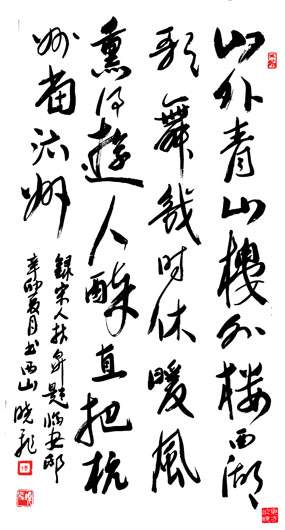 山外青山樓外樓西湖
歌舞幾时休暖風
熏得遊人醉直把杭
州當汴州
錄宋人林升題临安邸
辛卯夏月书西山 晓龙